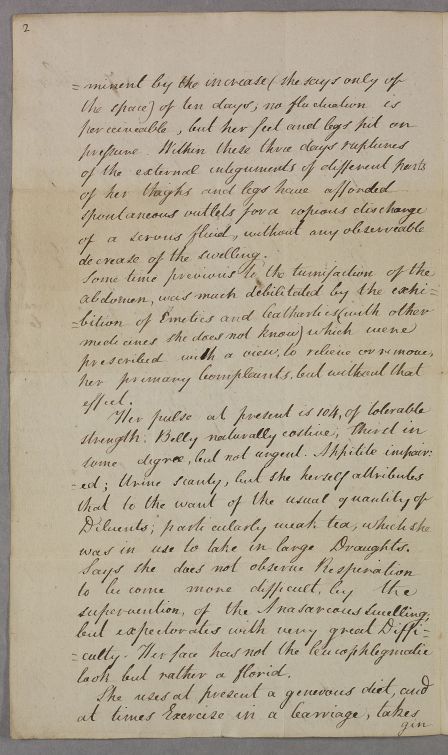 2
=minent by the increase (she says only of
the space) of ten days; no fluctuation is
perceiveable, but her feet and legs pit on
pressure. Within these three days ruptures
of the external integuments of different parts
of her thighs and legs have afforded
spontaneous outlets for a copious discharge
of a serous fluid, without any observeable
decrease of the swelling.
Some time previous to the tumifaction of the
abdomen, was much debilitated by the exhi=
=bition of Emetics and Cathartics (with other
medicines she does not know) which were
prescribed with a view, to relieve or remove,
her primary Complaints, but without that
effect.
Her pulse at present is 104, of tolerable
strength. Belly naturally costive; Thirst in
some degree, but not urgent. Appitite impair=
=ed; Urine scanty, but she herself attributes
that to the want of the usual quantity of
Diluents; particularly weak tea, which she
was in use to take in large Draughts.
Says she does not observe Respiration
to become more difficult, by the
supervention, of the Anasarcous Swelling,
but expectorates with very great Diffi=
=culty. Her face has not the leucophlegmatic
look but rather a florid.
She uses at present a generous diet, and
at times Exercise in a Carriage, takes
gin